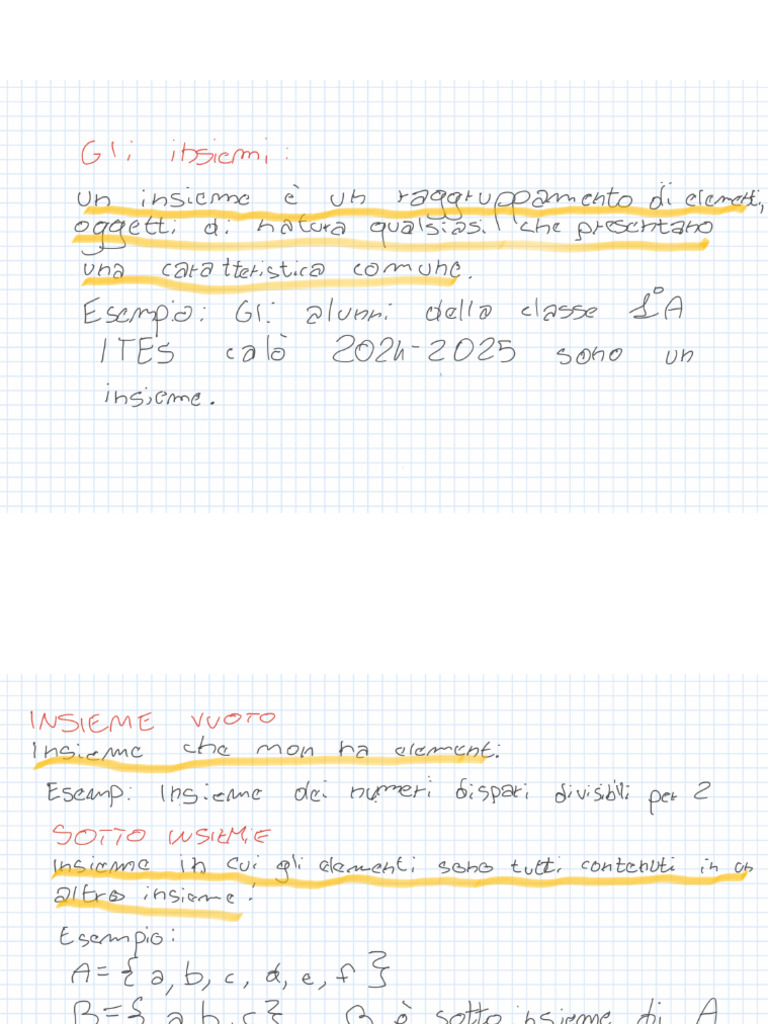 Gli insiemi:
un insieme è un raggruppamento di elementi,
oggetti di natura qualsiasi che presentano
una caratteristica comune.
Esempio: Gli alunni della classe 1°A
ITES calò 2024-2025 sono un
insieme.
INSIEME VUOTO
Insieme che non ha elementi.
Esempi: Insieme dei numeri dispari divisibili per 2
SOTTO INSIEME
Insieme in cui gli elementi sono tutti contenuti in un
altro insieme.
Esempio:
A={a, b, c, d, e, f}
B={a, b, c} B è sotto insieme di A